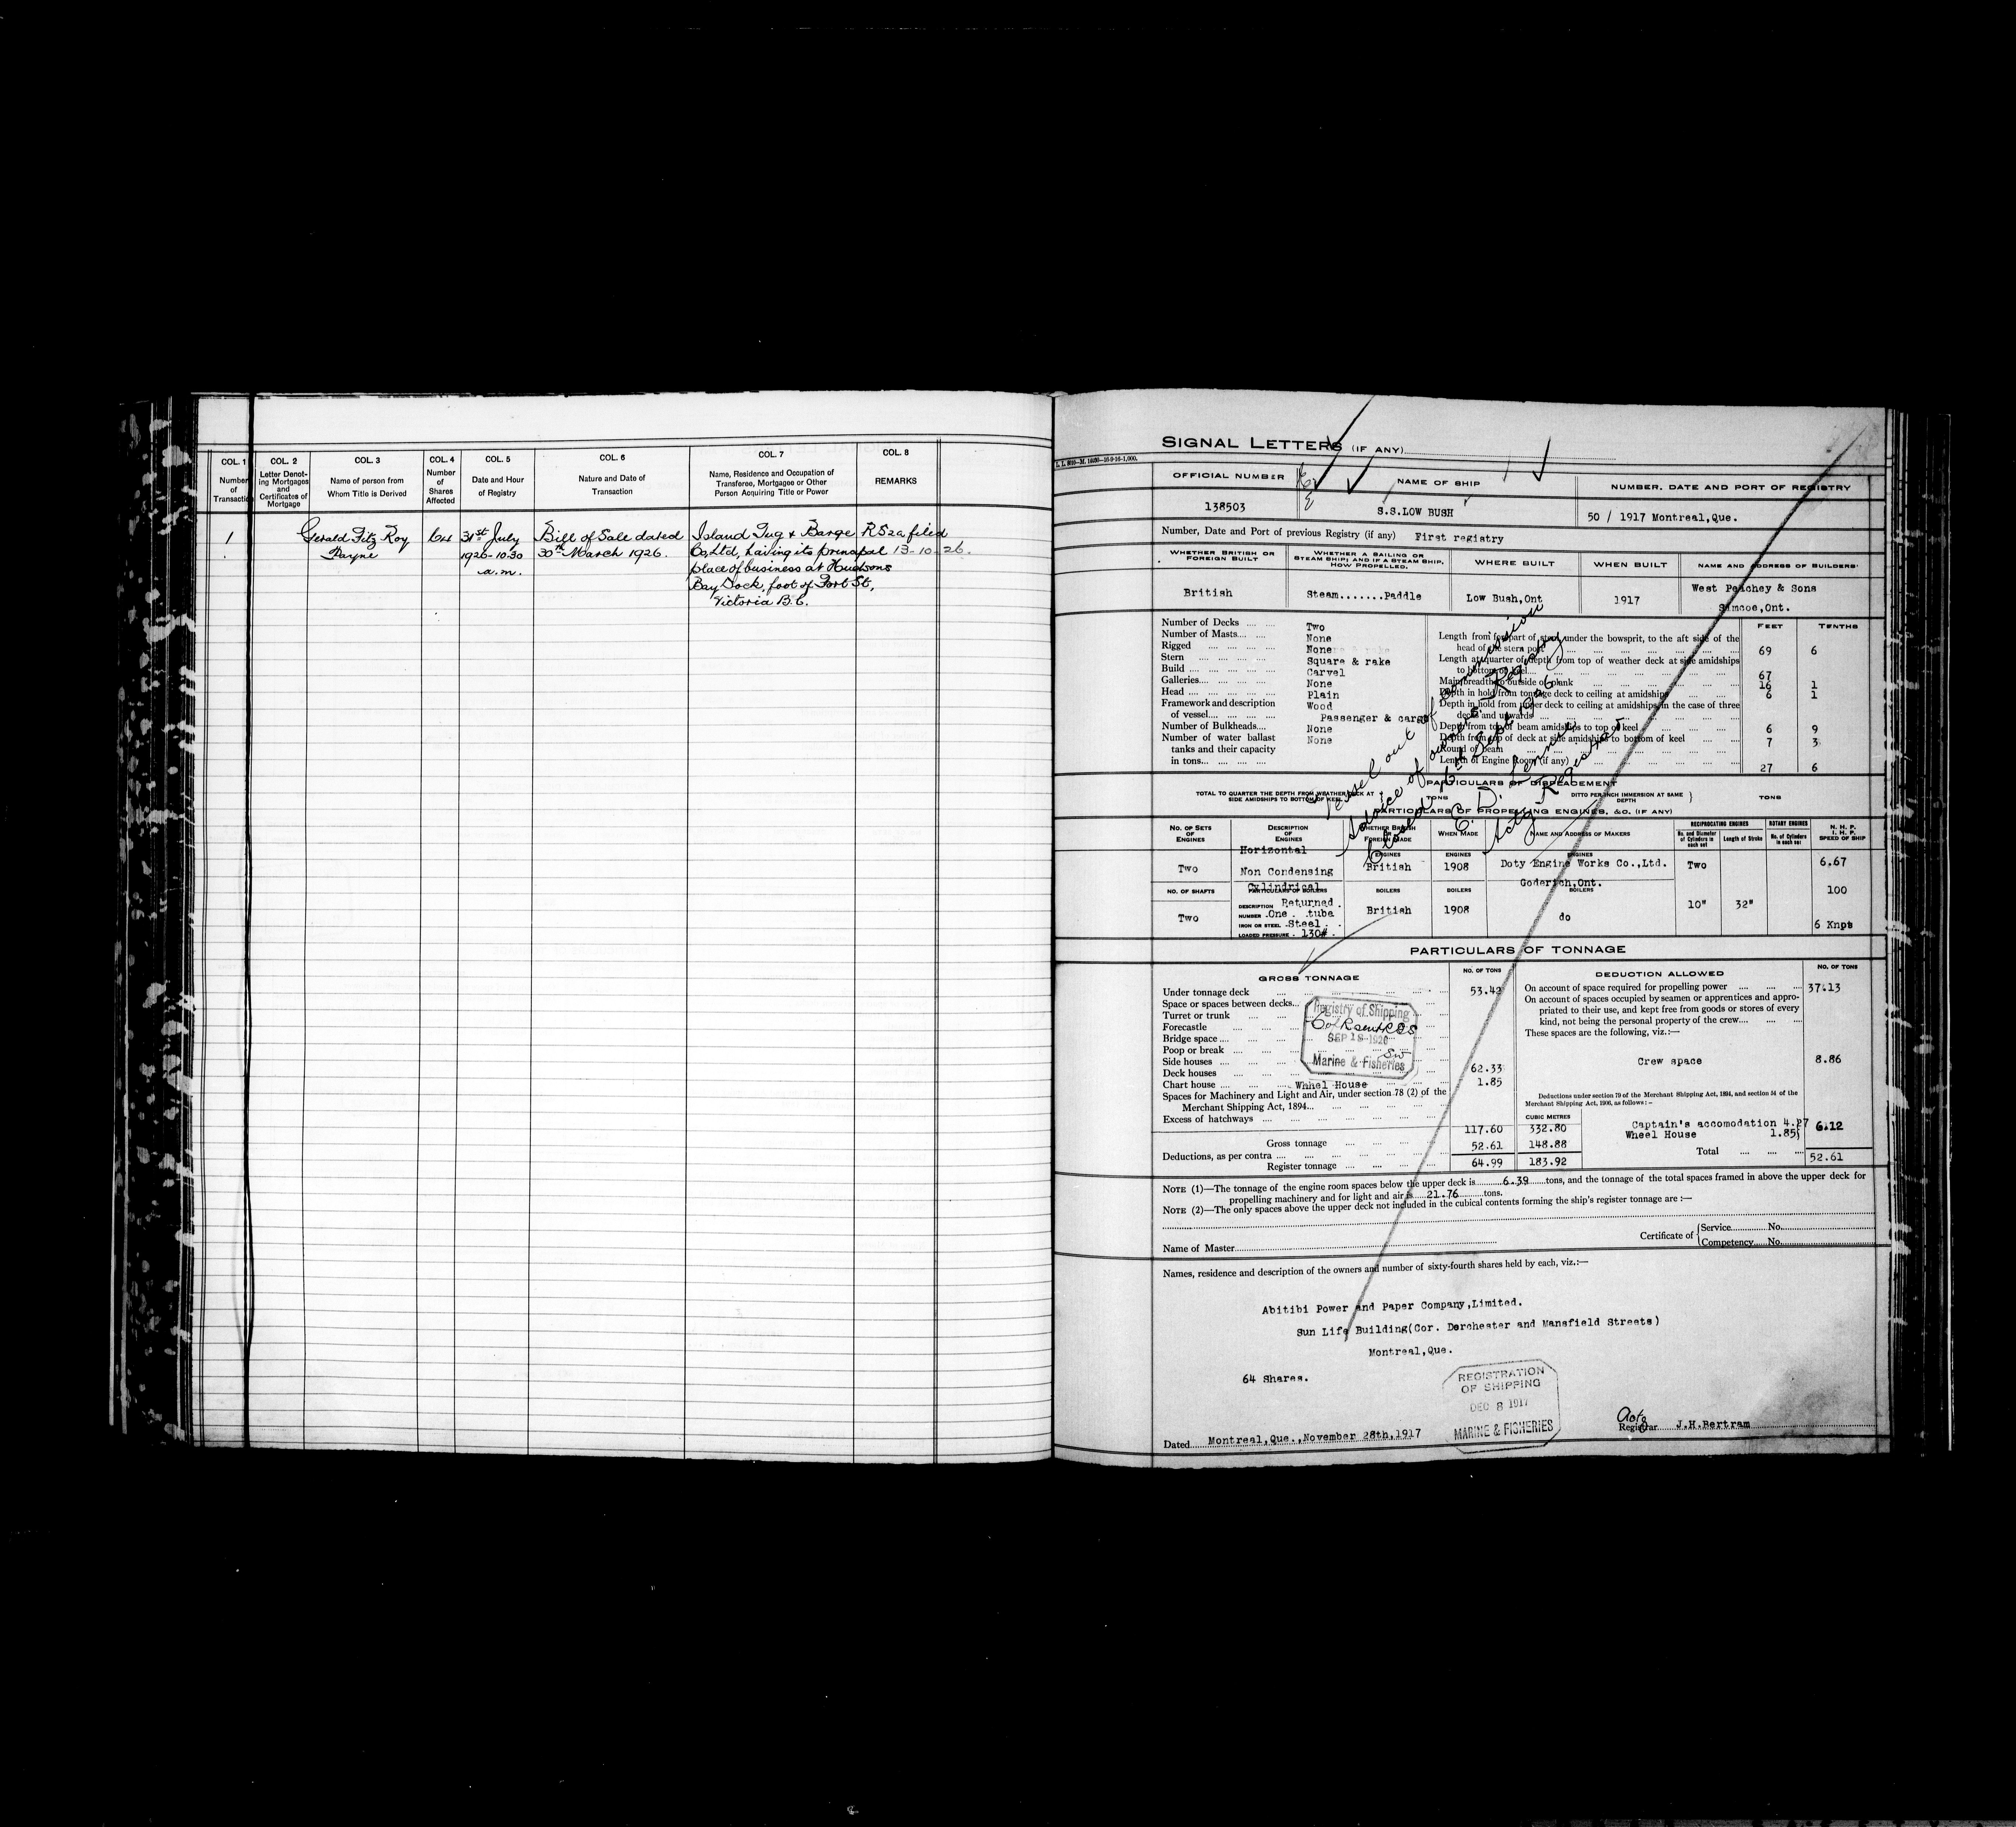 COL. 1
Number
of
Transactio
COL. 2
Letter Denot-
ing Mortgages
and
Certificates of
Mortgage
COL. 3
Name of person from
Whom Title is Derived
COL. 4
Number
of
Shares
Affected
COL. 5
Date and Hour
of Registry
COL. 6
Nature and Date of
Transaction
COL. 7
Name, Residence and Occupation of
Transferee, Mortgagee or Other
Person Acquiring Title or Power
COL. 8
REMARKS
1
Gerald Fitz Roy
Payne
64
31st July
1926-10.30
a.m.
Bill of Sale dated
30th March 1926.
Island Tug & Barge
Co, Ltd, having its principal
place of business at Hudsons
Bay Dock, foot of Fort St,
Victoria B.C.
R52a filed
13-10-26.
SIGNAL LETTERS (IF ANY)
OFFICIAL NUMBER
NAME OF SHIP
NUMBER, DATE AND PORT OF REGISTRY
138503
S.S.LOW BUSH
50 / 1917 Montreal,Que.
Number, Date and Port of previous Registry (if any) First registry
WHETHER BRITISH OR
FOREIGN BUILT
WHETHER A SAILING OR
STEAM SHIP; AND IF A STEAM SHIP,
HOW PROPELLED.
WHERE BUILT
WHEN BUILT
NAME AND ADDRESS OF BUILDERS'
British
Steam.......Paddle
Low Bush,Ont
1917
West Peachey & Sons
Simcoe,Ont.
FEET TENTHS
Number of Decks Two
Number of Masts None
Rigged None
Stern Square & rake
Build Carvel
Galleries None
Head Plain
Framework and description Wood
of vessel Passenger & cargo
Number of Bulkheads None
Number of water ballast None
tanks and their capacity
in tons
Length from forepart of stem under the bowsprit, to the aft side of the
head of the stern post 69 6
Length at quarter of depth from top of weather deck at side amidships
to bottom of keel 67
Main breadth to outside of plank 16 1
Depth in hold from tonnage deck to ceiling at amidships 6 1
Depth in hold from upper deck to ceiling at amidships, in the case of three
decks and upwards
Depth from top of beam amidships to top of keel 6 9
Depth from top of deck at side amidships to bottom of keel 7 3
Round of beam
Length of Engine Room (if any) 27 6
Vessel out of commission
Advice of owner. Registry
Closed Sept 1926
E. D. Lennie
Actg Registrar
PARTICULARS OF DISPLACEMENT
TOTAL TO QUARTER THE DEPTH FROM WEATHER DECK AT
SIDE AMIDSHIPS TO BOTTOM OF KEEL
TONS
DITTO PER INCH IMMERSION AT SAME
DEPTH
TONS
PARTICULARS OF PROPELLING ENGINES, &C. (IF ANY)
NO. OF SETS
OF
ENGINES
DESCRIPTION
OF
ENGINES
WHETHER BRITISH
OR
FOREIGN MADE
WHEN MADE
NAME AND ADDRESS OF MAKERS
RECIPROCATING ENGINES
No. and Diameter
of Cylinders in
each set
Length of Stroke
ROTARY ENGINES
No. of Cylinders
in each set
N. H. P.
I. H. P.
SPEED OF SHIP
Two
Horizontal
Non Condensing
ENGINES
British
ENGINES
1908
ENGINES
Doty Engine Works Co.,Ltd.
Goderich,Ont.
Two
6.67
NO. OF SHAFTS
Two
Cylindrical
PARTICULARS OF BOILERS
DESCRIPTION Returned
NUMBER One tube
IRON OR STEEL Steel
LOADED PRESSURE 130#
BOILERS
British
BOILERS
1908
BOILERS
do
10" 32"
100
6 Knots
PARTICULARS OF TONNAGE
GROSS TONNAGE
NO. OF TONS
Under tonnage deck 53.42
Space or spaces between decks
Turret or trunk
Forecastle
Bridge space
Poop or break
Side houses
Deck houses 62.33
Chart house Whhel House 1.85
Spaces for Machinery and Light and Air, under section 78 (2) of the
Merchant Shipping Act, 1894
Excess of hatchways
CUBIC METRES
Gross tonnage 117.60 332.80
Deductions, as per contra 52.61 148.88
Register tonnage 64.99 183.92
Registry of Shipping
SEP 18 1926
Marine & Fisheries
DEDUCTION ALLOWED
NO. OF TONS
On account of space required for propelling power 37.13
On account of spaces occupied by seamen or apprentices and appro-
priated to their use, and kept free from goods or stores of every
kind, not being the personal property of the crew
These spaces are the following, viz.:—
Crew space 8.86
Deductions under section 79 of the Merchant Shipping Act, 1894, and section 54 of the
Merchant Shipping Act, 1906, as follows:—
Captain's accomodation 4.27
Wheel House 1.85 6.12
Total 52.61
NOTE (1)—The tonnage of the engine room spaces below the upper deck is 6.39 tons, and the tonnage of the total spaces framed in above the upper deck for
propelling machinery and for light and air is 21.76 tons.
NOTE (2)—The only spaces above the upper deck not included in the cubical contents forming the ship's register tonnage are :—
Name of Master
Certificate of
Service No.
Competency No.
Names, residence and description of the owners and number of sixty-fourth shares held by each, viz.:—
Abitibi Power and Paper Company,Limited.
Sun Life Building(Cor. Dorchester and Mansfield Streets)
Montreal,Que.
64 Shares.
REGISTRATION
OF SHIPPING
DEC 8 1917
MARINE & FISHERIES
Dated Montreal,Que.,November 28th,1917
Actg
Registrar J.H.Bertram